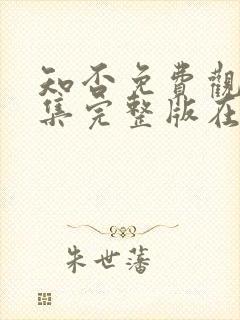 知否免費觀
集完整版在
朱世藩